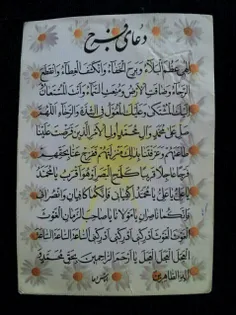 دعای فرج
الهی عظم البلاء وبرح الخفاء وانکشف الغطاء وانقطع
الرجاء وضاقت الارض ومنعت السماء وانت المستعان
والیک المشتکی وعلیک المعول فی الشدة والرخاء اللهم
صل علی محمد وال محمد اولی الامر الذین فرضت علینا
طاعتهم وعرفتنا بذلک منزلتهم ففرج عنا بحقهم
فرجا عاجلا قریبا کلمح البصر او هو اقرب یا محمد
یا علی یا علی یا محمد اکفیانی فانکما کافیان وانصرانی
فانکما ناصران یا مولانا یا صاحب الزمان الغوث
الغوث الغوث ادرکنی ادرکنی ادرکنی الساعة الساعة الساعة
العجل العجل العجل یا ارحم الراحمین بحق محمد و
اله الطاهرین